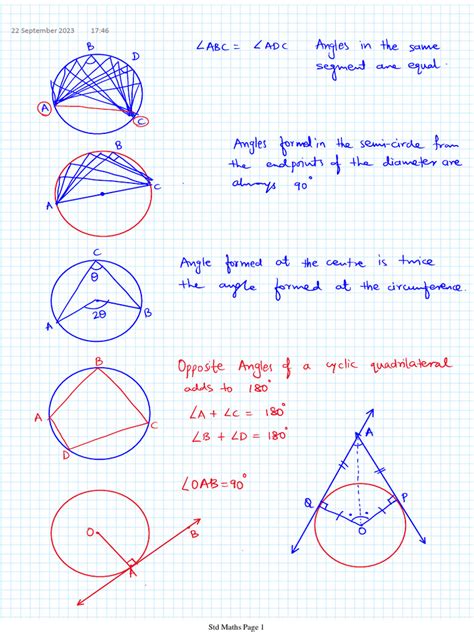 22 September 2023 17:46
B
D
A
C
∠ABC = ∠ADC Angles in the same
segment are equal.
B
A
C
Angles formed in the semi-circle from
the endpoints of the diameter are
always 90°
C
θ
2θ
A
B
Angle formed at the centre is twice
the angle formed at the circumference.
B
A
C
D
Opposite Angles of a cyclic quadrilateral
adds to 180°
∠A + ∠C = 180°
∠B + ∠D = 180°
∠OAB = 90°
O
A
B
A
Q
P
O
Std Maths Page 1